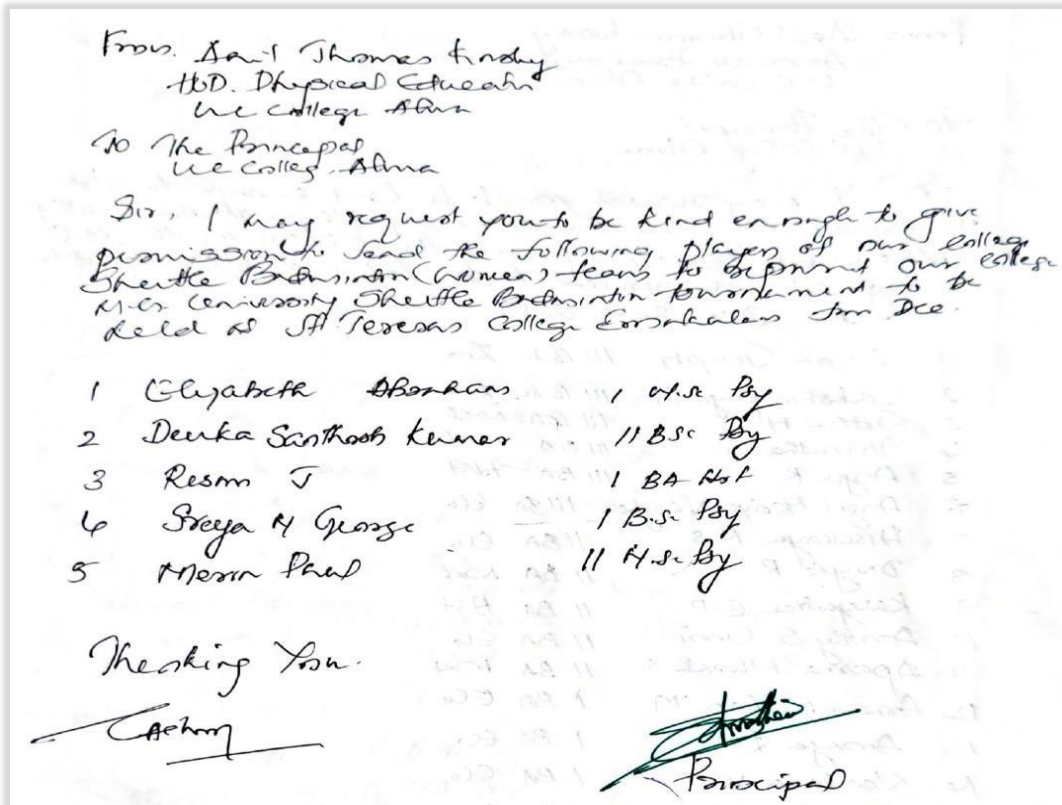 From. Anil Thomas Koshy
HOD. Physical Education
UC College Aluva
To The Principal
UC College. Aluva
Sir, I may request you to be kind enough to give
permission to send the following players of our college
Shuttle Badminton (women) team to represent our college
M.G. University Shuttle Badminton tournament to be
held at St Teresas College Ernakulam from Dec.
1 Elizabeth Abraham. I M.Sc Psy
2 Devika Santhosh Kumar II BSc Psy
3 Resmi J I BA Hist
4 Sreya M George I B.Sc Psy
5 Merin Paul II M.Sc Psy
Thanking You.
Principal